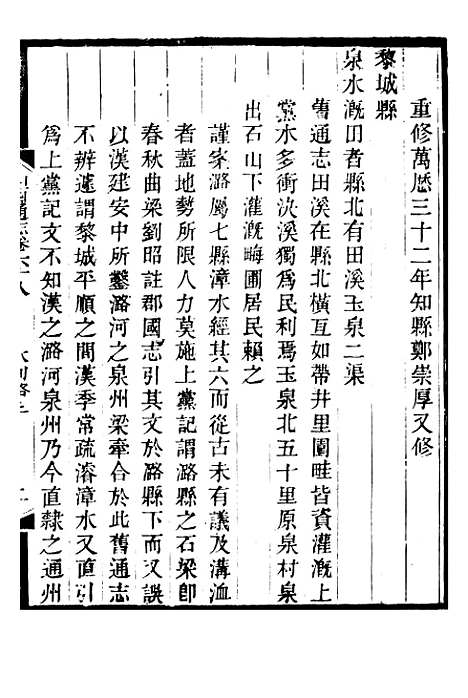 重修萬厯三十二年知縣鄭崇厚又修
黎城縣
泉水漑田者縣北有田溪玉泉二渠
舊通志田溪在縣北橫亙如帶井里園畦皆資灌漑上
黨水多衝決溪獨爲民利焉玉泉北五十里原泉村泉
出石山下灌漑畮圃居民賴之
謹案潞屬七縣漳水經其六而從古未有議及溝洫
者蓋地勢所限人力莫施上黨記謂潞縣之石梁卽
春秋曲梁劉昭註郡國志引其文於潞縣下而又誤
以漢建安中所鑿潞河之泉州梁牽合於此舊通志
不辨遽謂黎城平順之間漢季常疏濬漳水又直引
爲上黨記文不知漢之潞河泉州乃今直隸之通州
卷六十八
水利略三